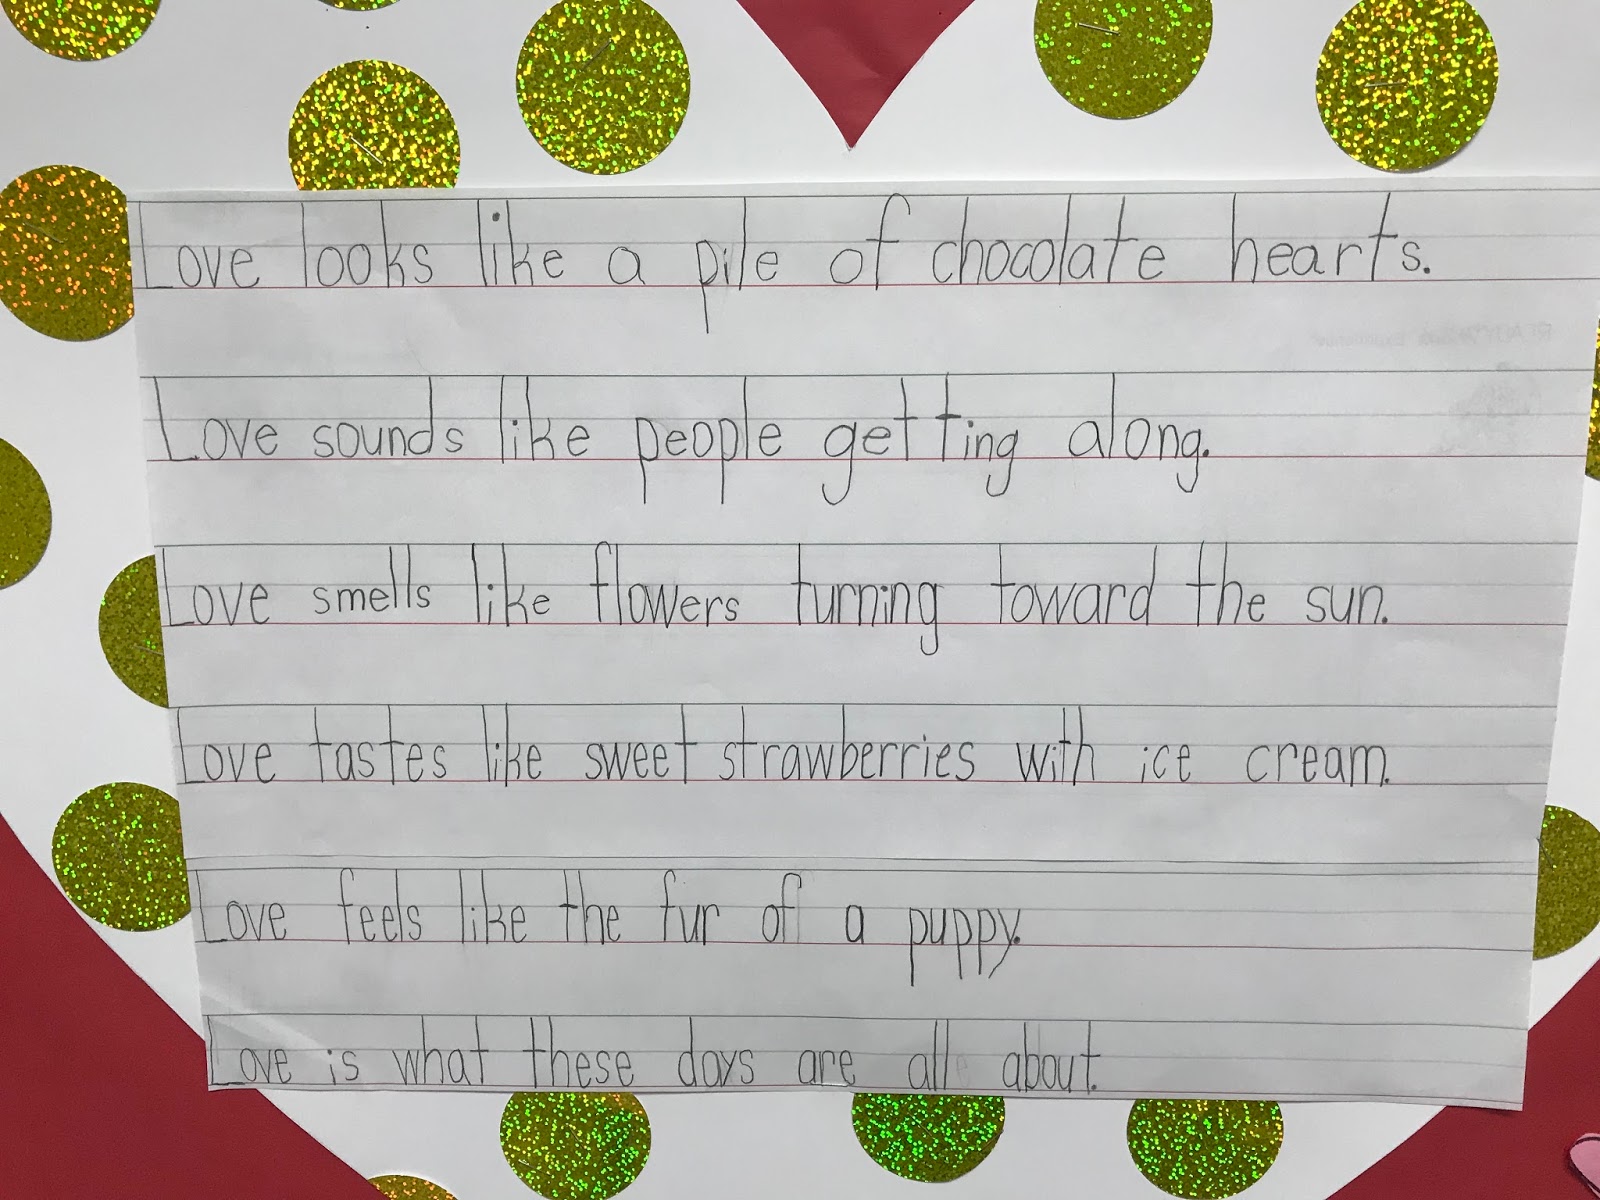 Love looks like a pile of chocolate hearts.
Love sounds like people getting along.
Love smells like flowers turning toward the sun.
Love tastes like sweet strawberries with ice cream.
Love feels like the fur of a puppy.
Love is what these days are all about.